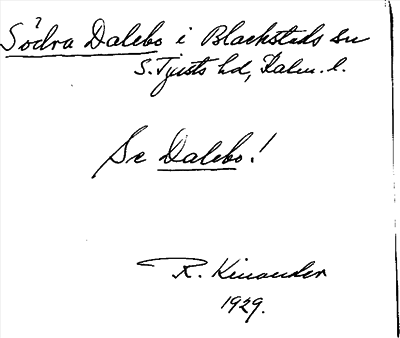 Södra Dalebo i Blackstads sn
S. Tjusts hd, Kalm. l.
Se Dalebo!
R. Kinander
1929.